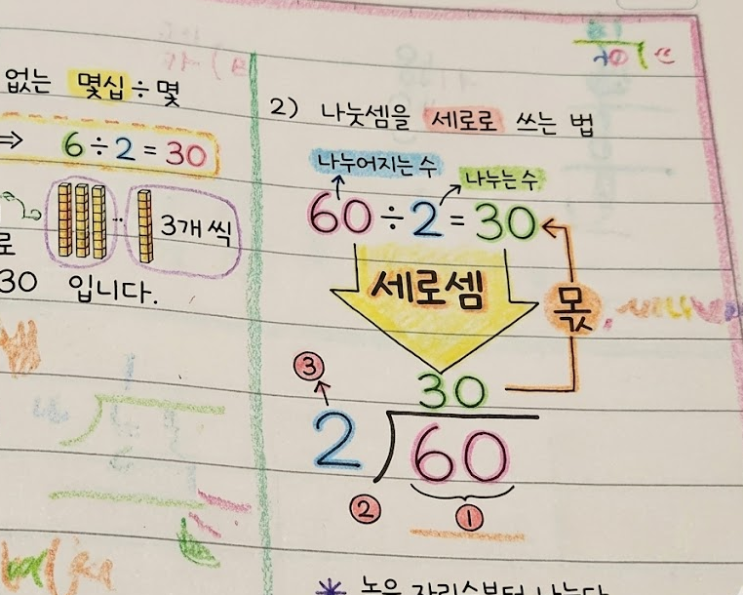 없는 몇십÷몇
⇒ 6÷2=30
3개 씩
로
30 입니다.
2) 나눗셈을 세로로 쓰는 법
나누어지는 수
나누는 수
60÷2=30
세로셈
몫
③
30
2 60
② ①
* 높은 자리수부터 나눈다